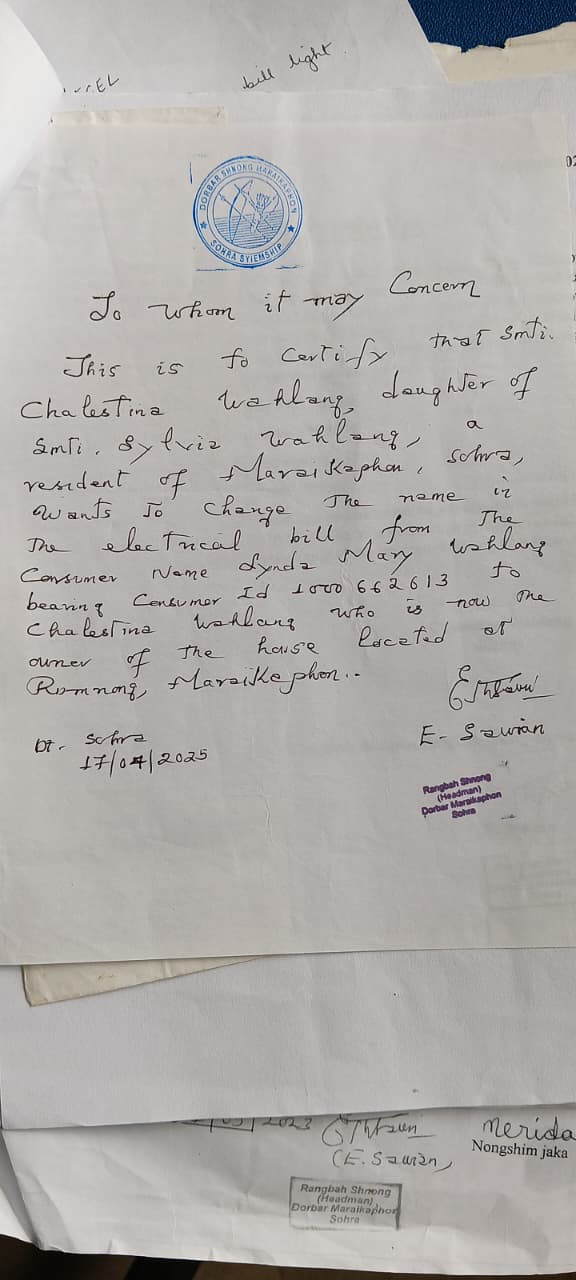 bill light
DORBAR SHNONG MARAIKAPHON
SOHRA SYIEMSHIP
To whom it may Concern
This is to Certify that Smti.
Chalestina Wahlang, daughter of
Smti. Sylvia Wahlang, a
resident of Maraikaphon, Sohra,
wants To Change The name in
The electrical bill from The
Consumer Name Lynda Mary Wahlang
bearing Consumer Id 1000662613 to
Chalestina Wahlang who is now the
owner of The house located at
Rumnong, Maraikaphon..
E. Sawian
Dt. Sohra
17/04/2025
Rangbah Shnong
(Headman)
Dorbar Maraikaphon
Sohra
2023
(E. Sawian)
Merida
Nongshim jaka
Rangbah Shnong
(Headman)
Dorbar Maraikaphon
Sohra